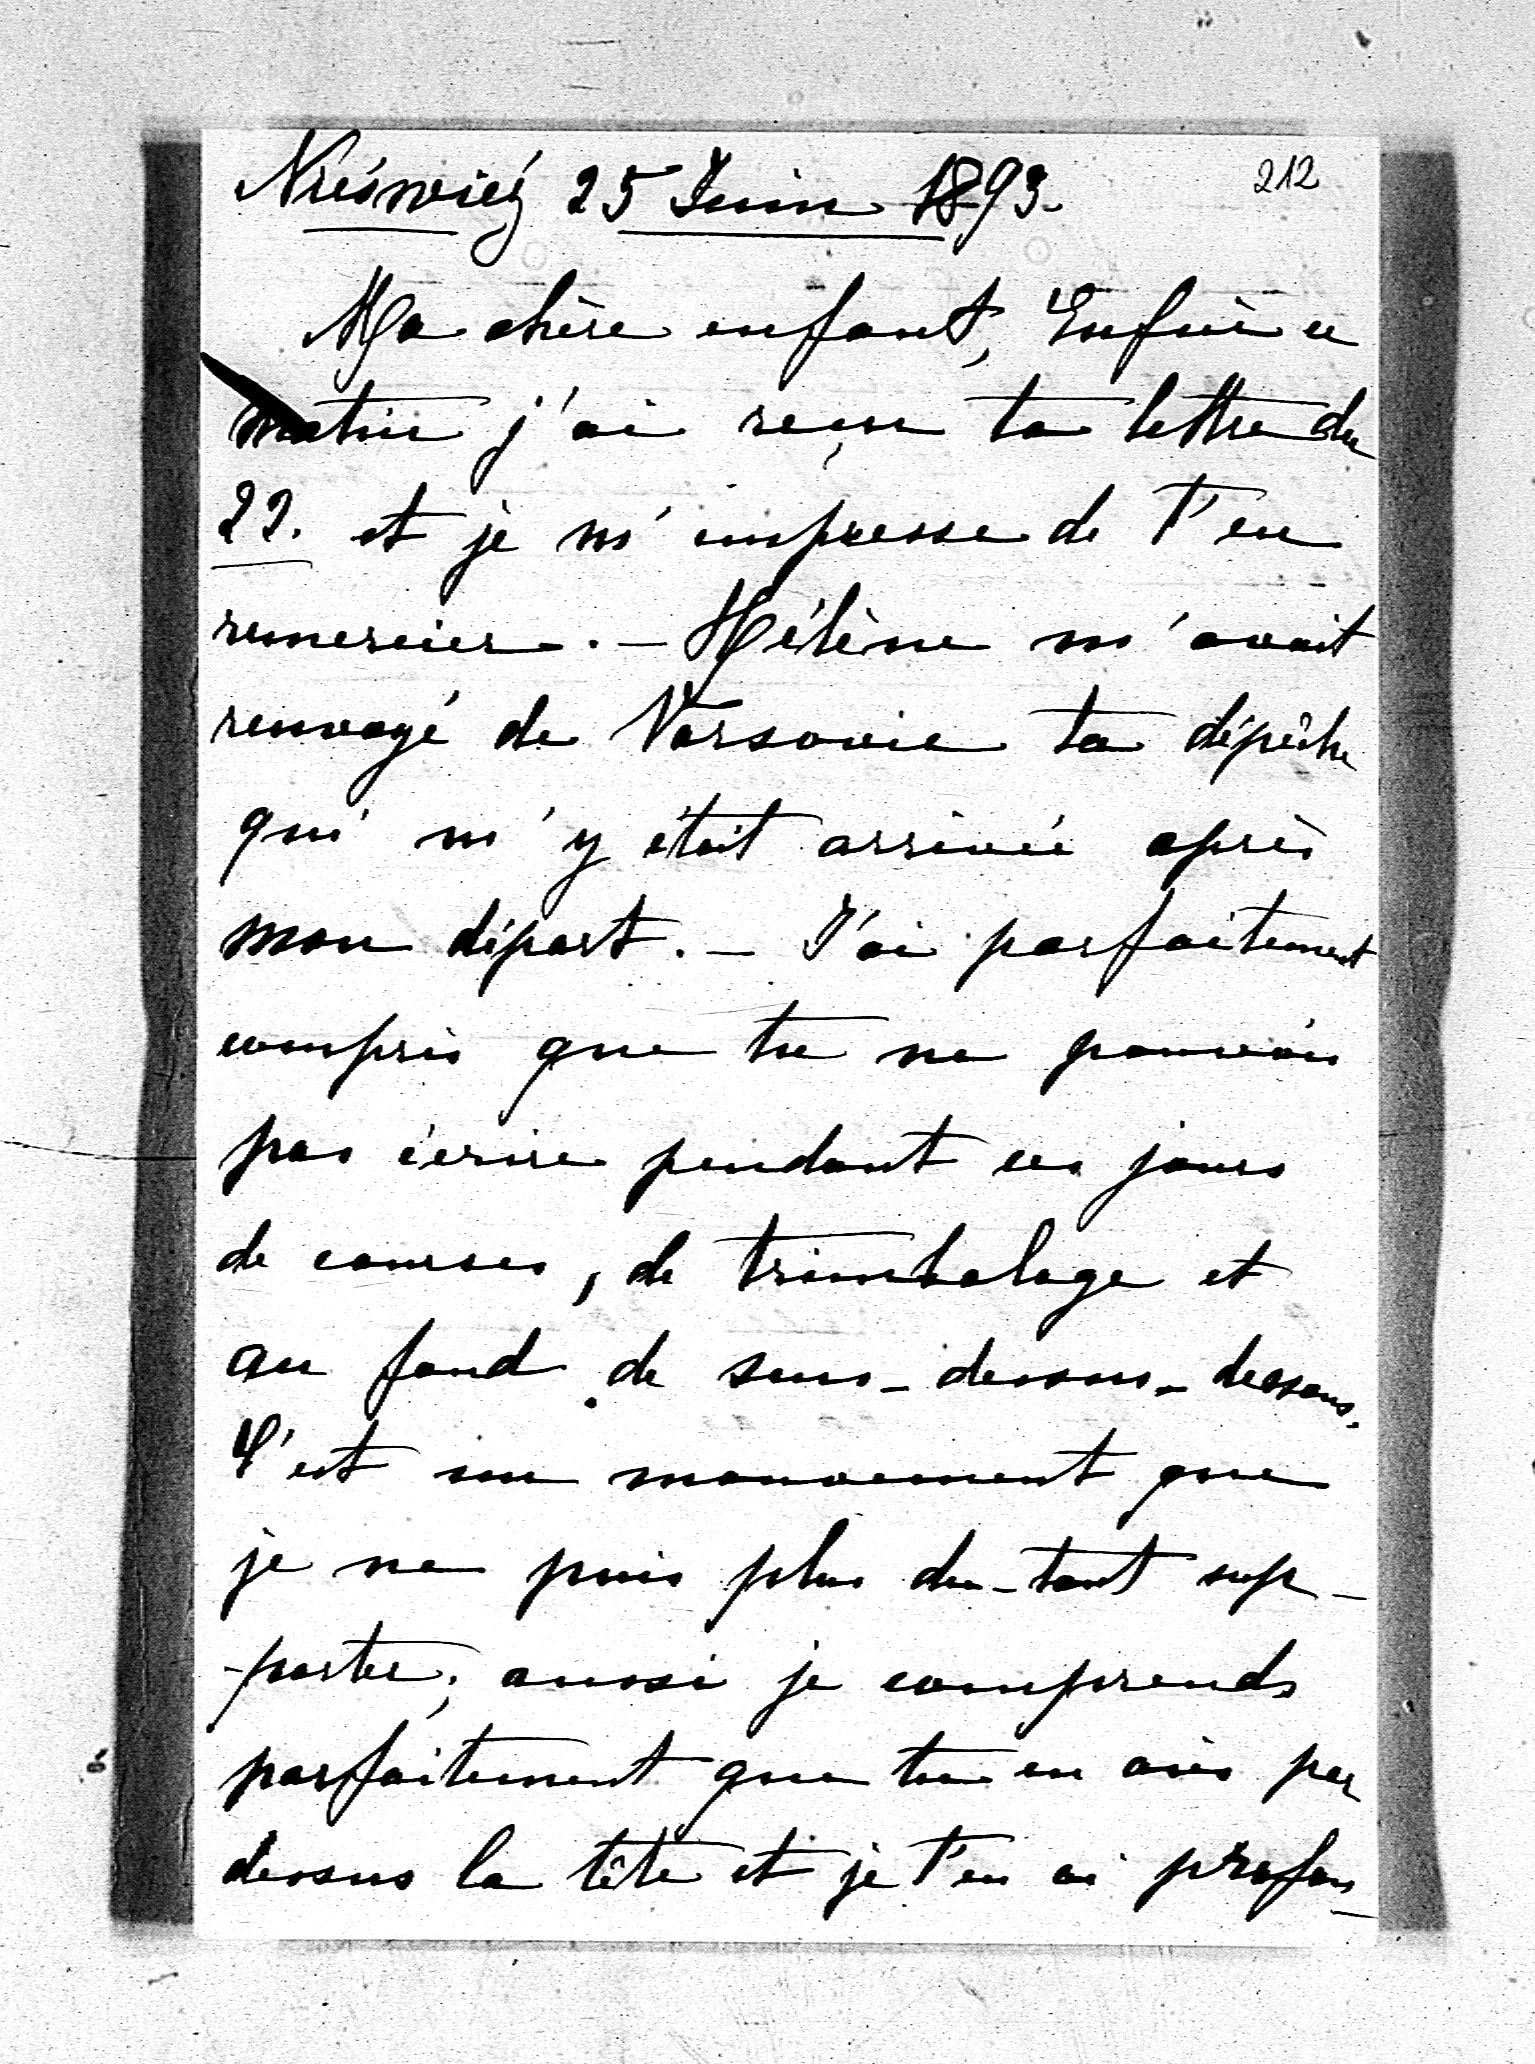 Nieśwież 25 Juin 1893.
212
Ma chère enfant, Enfin ce
matin j'ai reçu ta lettre du
22. et je m'empresse de t'en
remercier. — Hélène m'avait
renvoyé de Varsovie ta dépêche
qui m'y était arrivée après
mon départ. — J'ai parfaitement
compris que tu ne pouvais
pas écrire pendant ces jours
de courses, de trimbalage et
au fond de sens-dessus-dessous.
C'est un mouvement que
je ne puis plus du-tout sup-
-porter; aussi je comprends
parfaitement que tu en aies par
dessus la tête et je t'en ai profon-